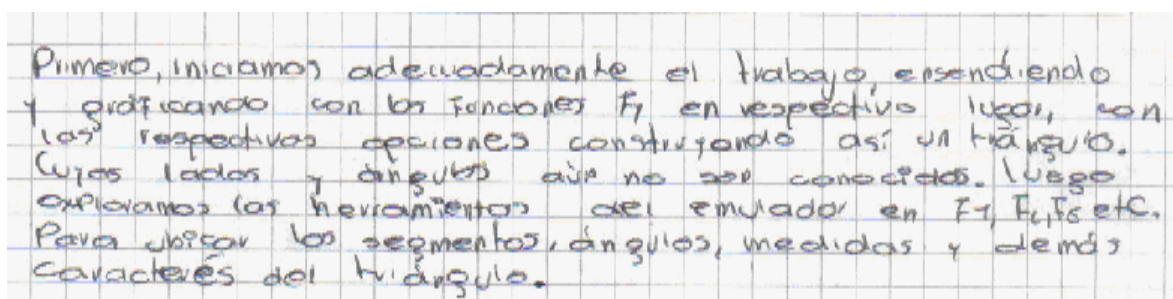 Primero, iniciamos adecuadamente el trabajo, ensendiendo
y graficando con las Funciones F1 en respectivo lugar, con
las respectivas opciones construyendo así un triángulo.
Cuyos lados y ángulos aún no son conocidos. luego
exploramos las herramientas del emulador en F1, F2, F5 etC.
Para ubicar los segmentos, ángulos, medidas y demás
caracterés del triángulo.